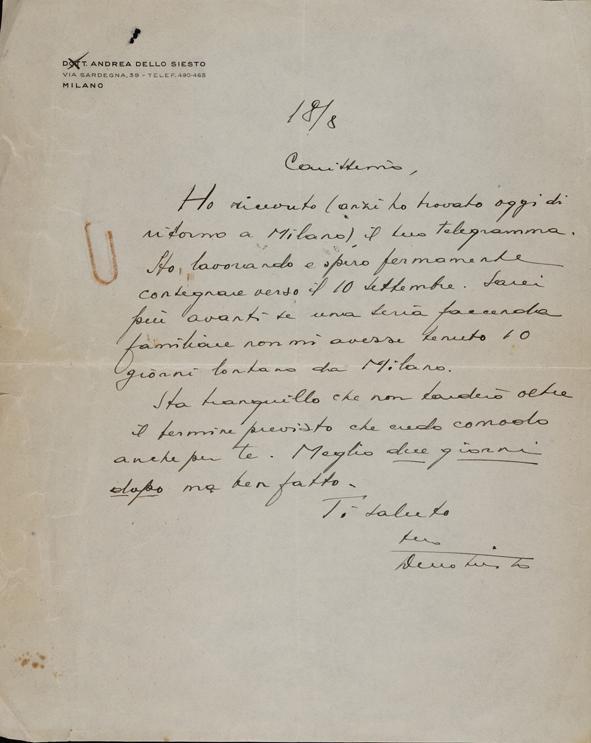 DOTT. ANDREA DELLO SIESTO
VIA SARDEGNA, 39 - TELEF. 490-465
MILANO
18/8
Carissimo,
Ho ricevuto (anzi ho trovato oggi di
ritorno a Milano) il tuo telegramma.
Sto lavorando e spero fermamente
consegnare verso il 10 settembre. Sarei
più avanti se una seria faccenda
familiare non mi avesse tenuto 10
giorni lontano da Milano.
Sta tranquillo che non tarderò oltre
il termine previsto che credo comodo
anche per te. Meglio due giorni
dopo ma ben fatto.
Ti saluto
tuo
Dello Siesto